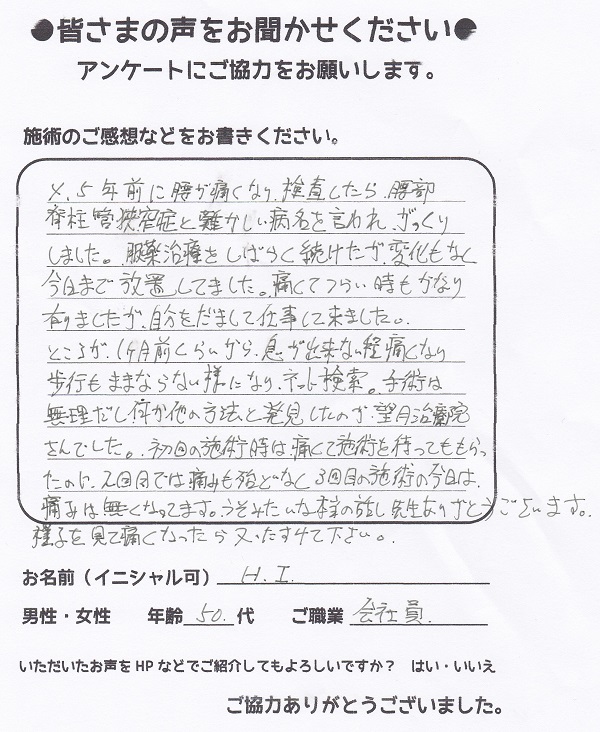 ●皆さまの声をお聞かせください●
アンケートにご協力をお願いします。
施術のご感想などをお書きください。
4、5年前に腰が痛くなり、検査したら、腰部
脊柱管狭窄症と難かしい病名を言われ、がっくり
しました。服薬治療をしばらく続けたが、変化もなく
今日まで放置してました。痛くてつらい時もかなり
有りましたが、自分をだまして仕事して来ました。
ところが、1ヶ月前くらいから、息が出来ない程痛くなり
歩行もままならない様になり、ネット検索。手術は
無理だし何か他の方法と発見したのが望月治療院
さんでした。初回の施術時は、痛くて施術を待ってもらっ
たのに、2回目では痛みも殆どなく3回目の施術の今日は、
痛みは無くなってます。うそみたいな本当の話し先生ありがとうございます。
様子を見て痛くなったら又、たすけて下さい。
お名前(イニシャル可) H.I.
男性・女性 年齢 50. 代 ご職業 会社員.
いただいたお声をHPなどでご紹介してもよろしいですか? はい・いいえ
ご協力ありがとうございました。